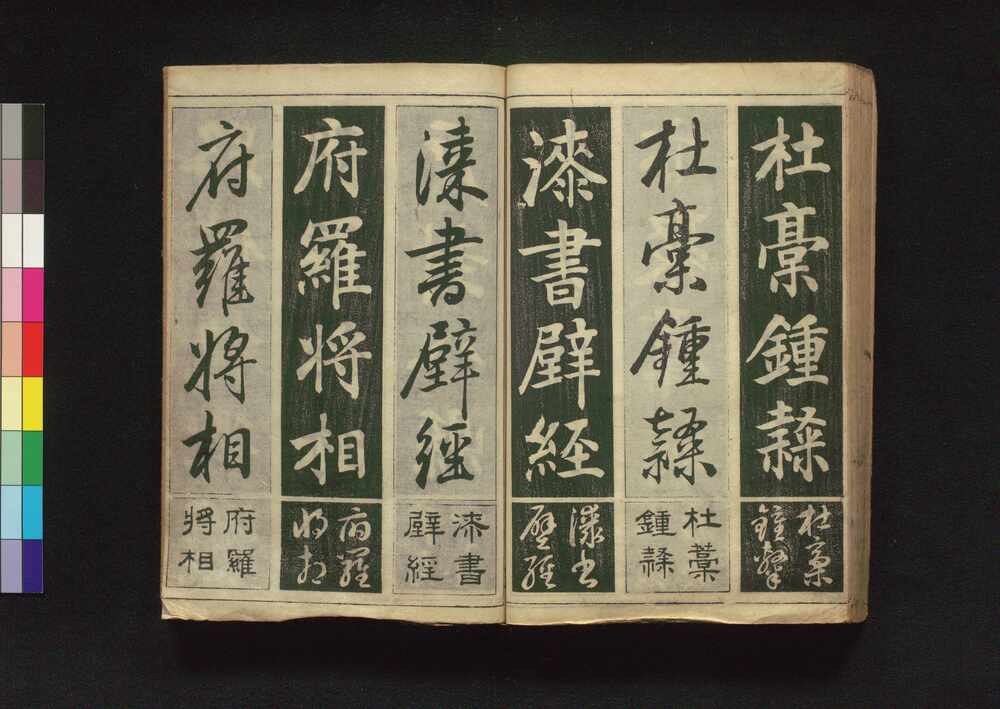 杜槀鍾隷
杜稾
鍾隷
杜槀鍾隷
杜藁
鍾隷
漆書壁経
漆書
壁經
漆書壁經
漆書
壁經
府羅将相
府羅
将相
府羅将相
府羅
將相